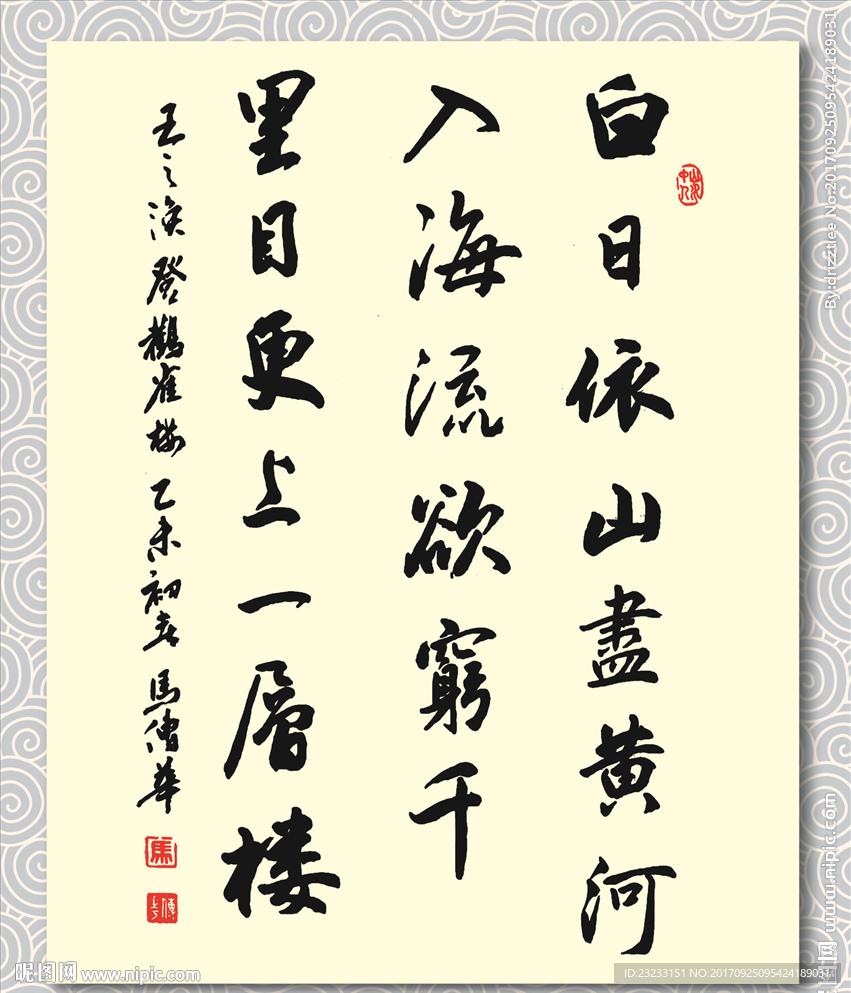 白日依山盡黄河
入海流欲窮千
里目更上一層楼
王之涣登鸛雀楼 乙未初春 馬傳華
馬
By:drizztlee No:20170925095424189031
昵图网 www.nipic.com
昵图网 www.nipic.com
ID:23233151 NO:20170925095424189031